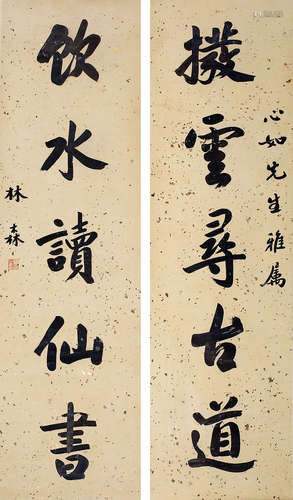 心如先生雅属
撥雲尋古道
飲水讀仙書
林森